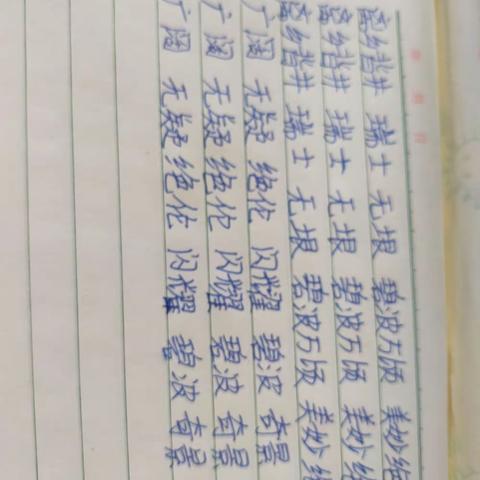 离乡背井 瑞士 无垠 碧波万顷 美妙绝
离乡背井 瑞士 无垠 碧波万顷 美妙绝
离乡背井 瑞士 无垠 碧波万顷 美妙绝
广阔 无疑 绝伦 闪耀 碧波 奇景
广阔 无疑 绝伦 闪耀 碧波 奇景
广阔 无疑 绝伦 闪耀 碧波 奇景